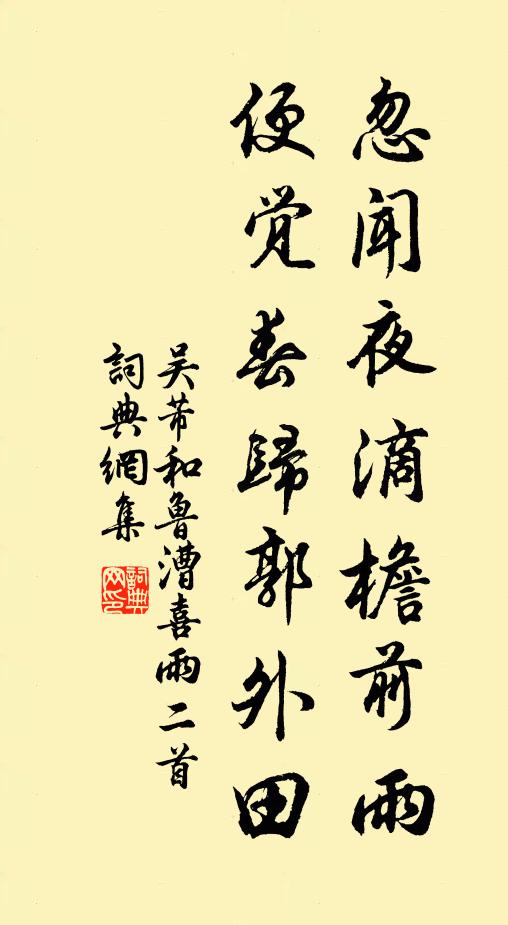 忽闻夜滴檐前雨
便觉春歸郭外田
吴芾和鲁漕喜雨二首
詞典網集
詞典網印